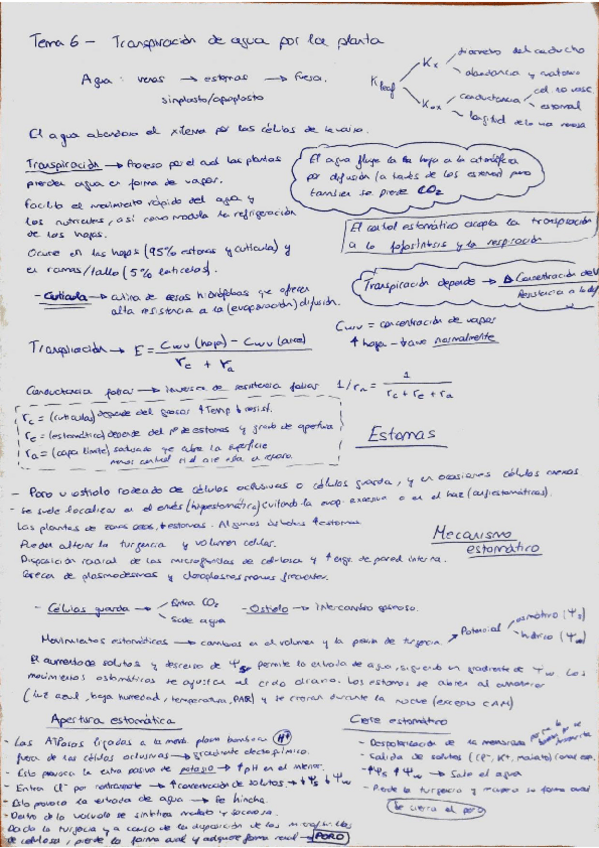 Tema 6 - Transpiración de agua por la planta
Agua: venas → estomas → fuera.
simplasto/apoplasto
K leaf
Kx
diametro del conducto
abundancia y
Kox
conductancia
cel. no vasc.
estomal
longitud de la via
El agua abandona el xilema por las células de la vaina.
Transpiración → Proceso por el cual las plantas
pierden agua en forma de vapor.
Facilita el movimiento rápido del agua y
los nutrientes, así como modula la refrigeración
de las hojas.
Ocurre en las hojas (95% estomas y cutícula) y
en ramas/tallo (5% lenticelas).
El agua fluye de la hoja a la atmósfera
por difusión (a través de los estomas) pero
también se pierde CO2
El control estomático acopla la transpiración
a la fotosíntesis y la respiración
- Cutícula → cutina de ceras hidrófobas que ofrecen
alta resistencia a la (evaporación) difusión.
Transpiración depende → Δ Concentración de
Resistencia a la
Transpiración → E = Cwv (hoja) - Cwv (aire)
rc + ra
Cwv = concentración de vapor
↑ hoja - aire normalmente
Conductancia foliar → inversa de resistencia foliar
1/ra = 1
rc + re + ra
rc = (cutícula) depende del grosor ↑Temp ↓ resist.
re = (estomática) depende del nº de estomas y grado de apertura
ra = (capa límite) que cubre la superficie
menos control si el aire está en reposo.
Estomas
- Poro u ostiolo rodeado de células oclusivas o células guarda, y en ocasiones células anexas
- Se suele localizar en el envés (hipoestomática) evitando la evap. excesiva o en el haz (anfiestomáticas).
Las plantas de zonas secas, ↓estomas. Algunos árboles ↑estomas.
Pueden alterar la turgencia y volumen celular.
Disposición radial de las microfibrillas de celulosa y ↑ de pared interna.
Carecen de plasmodesmos y cloroplastos menos frecuentes.
Mecanismo
estomático
- Células guarda → Entra CO2
Sale agua
- Ostiolo → intercambio gaseoso.
Movimientos estomáticos → cambios en el volumen y la presión de turgencia.
Potencial
osmótico (Ψs)
hídrico (Ψw)
El aumento de solutos y descenso de Ψs permite la entrada de agua, siguiendo un gradiente de Ψw. Los
movimientos estomáticos se ajustan al ciclo diario. Los estomas se abren al amanecer
(luz azul, baja humedad, temperatura, PAR) y se cierran durante la noche (excepto CAM)
Apertura estomática
- Las ATPasas ligadas a la memb. plasm. bombean H+
fuera de las células oclusivas → gradiente electroquímico.
- Esto provoca la entra pasiva de potasio → ↑pH en el interior.
- Entra Cl- por → ↑concentración de solutos → ↓Ψs ↓Ψw
- Esto provoca la entrada de agua → Se hincha.
- Dentro de la vacuola se sintetiza malato y sacarosa.
Dada la turgencia y a causa de la disposición de las microfibrillas
de celulosa, pierde la forma oval y adquiere forma → PORO
Cierre estomático
- Despolarización de la membrana
- Salida de solutos (Cl-, K+, malato)
- ↑Ψs ↑Ψw → Sale el agua
- Pierde la turgencia y su forma oval
Se cierra el poro